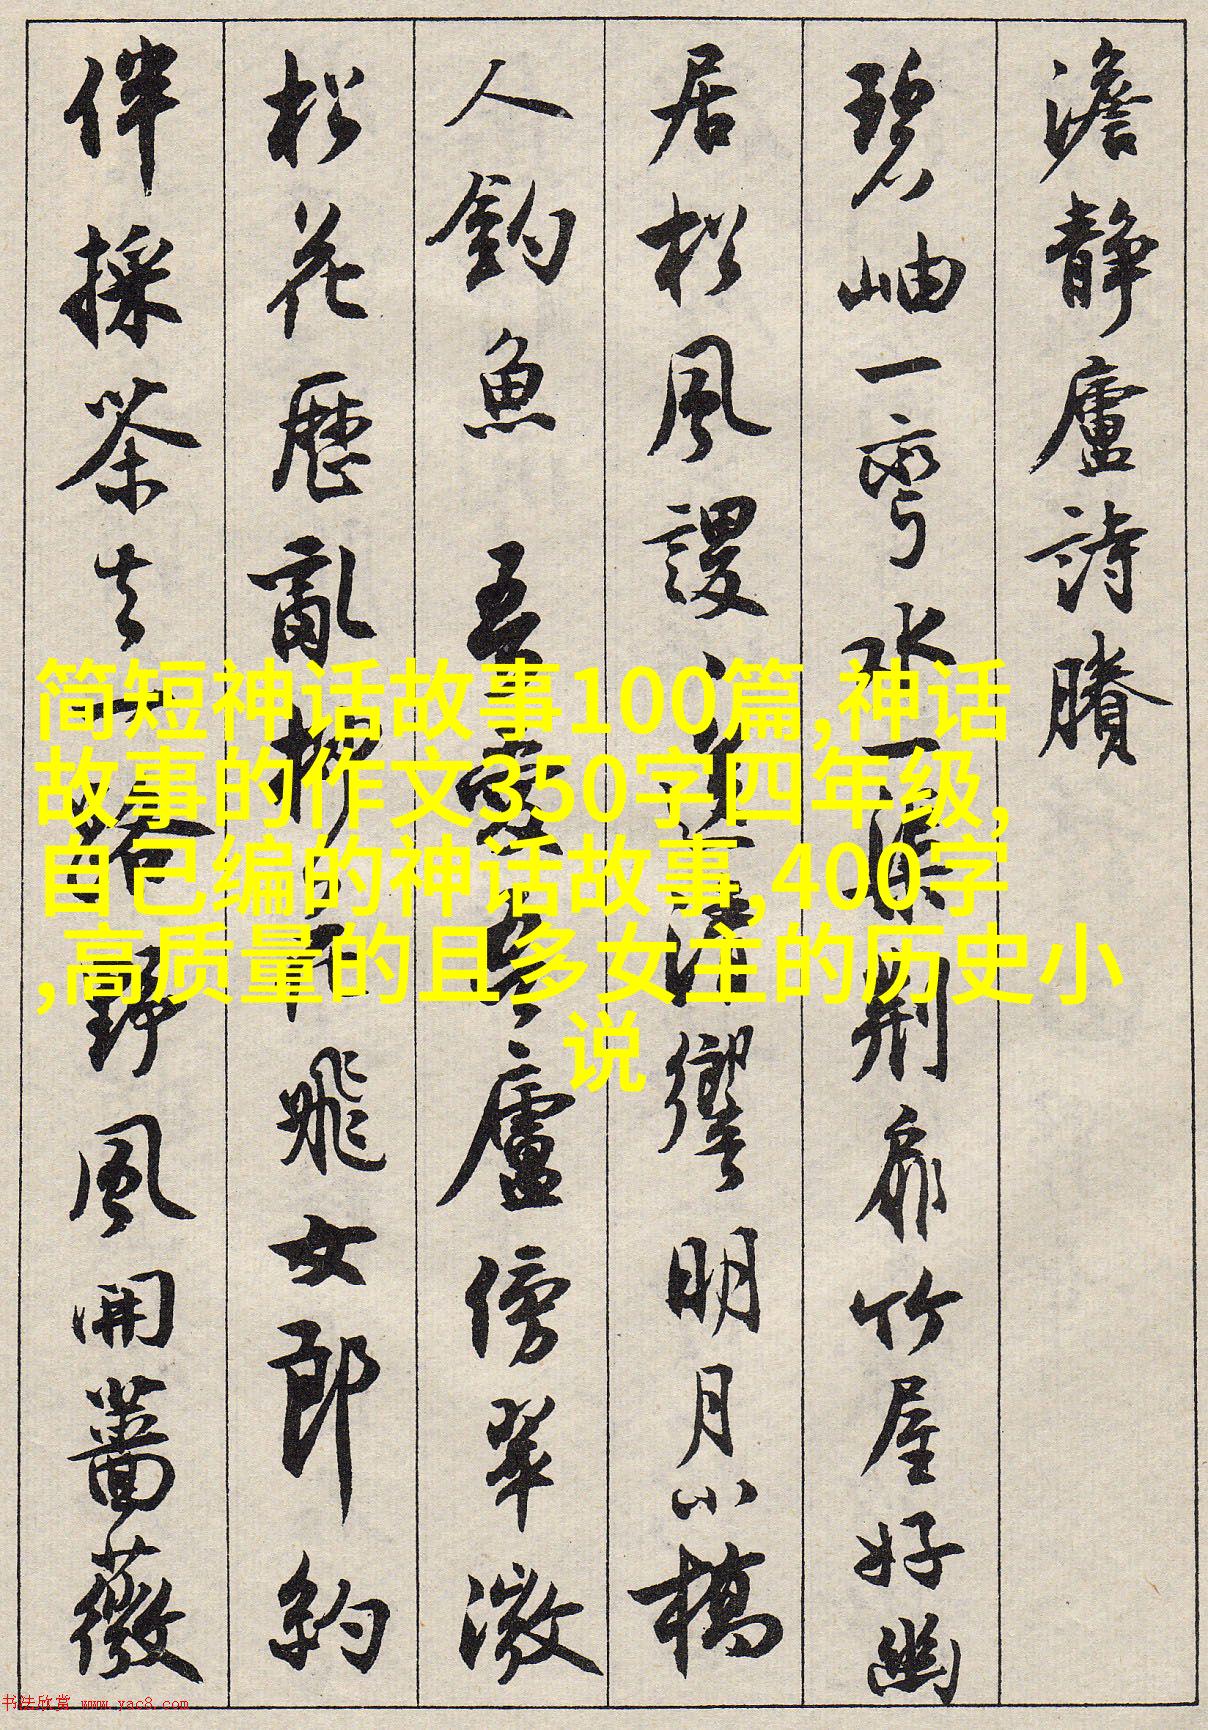 澹静廬詩賸
碧岫一彎水一荆扉竹屋好幽
居松風謖響明月小橋
人釣魚 吾愛吾廬傍翠微
松花歷亂柳花飛女郎約
伴採茶去一路野風開薔薇
简短神话故事100篇,神话
故事的作文350字四年级,
自己编的神话故事,400字
,高质量的且多女主的历史小
说
书法欣赏 www.yac8.com